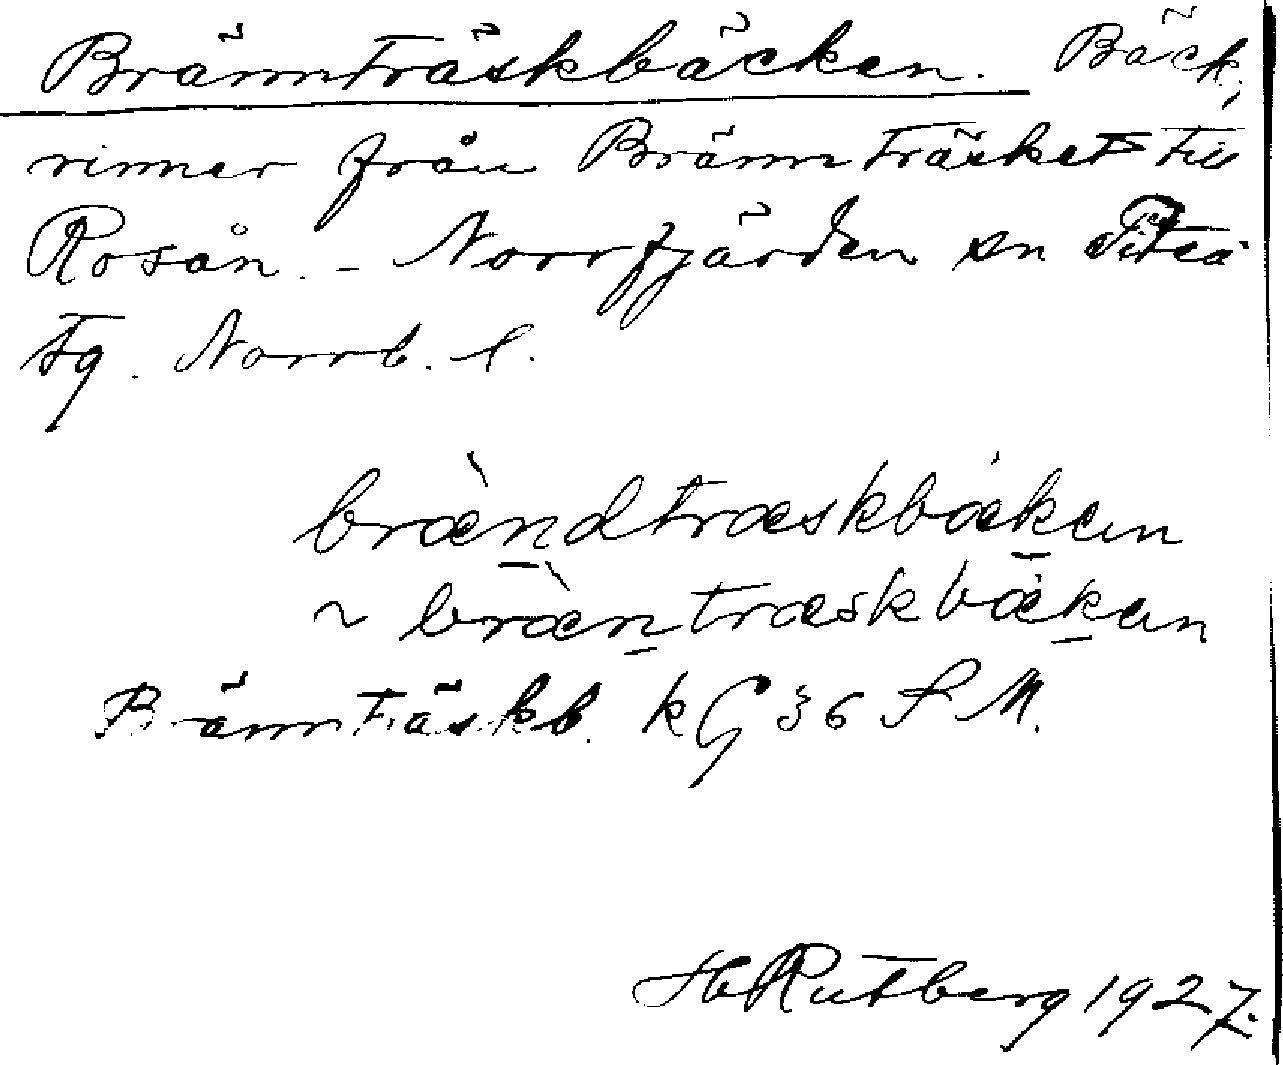 Brännträskbäcken. Bäck,
rinner från Brännträsket till
Rosån. - Norrfjärden sn Piteå
tg. Norrb. l.
bræ̀ndtræskbækan
~ bræ̀ntræskbækan
Brännträskb. kG 36 S M.
H Rutberg 1927.